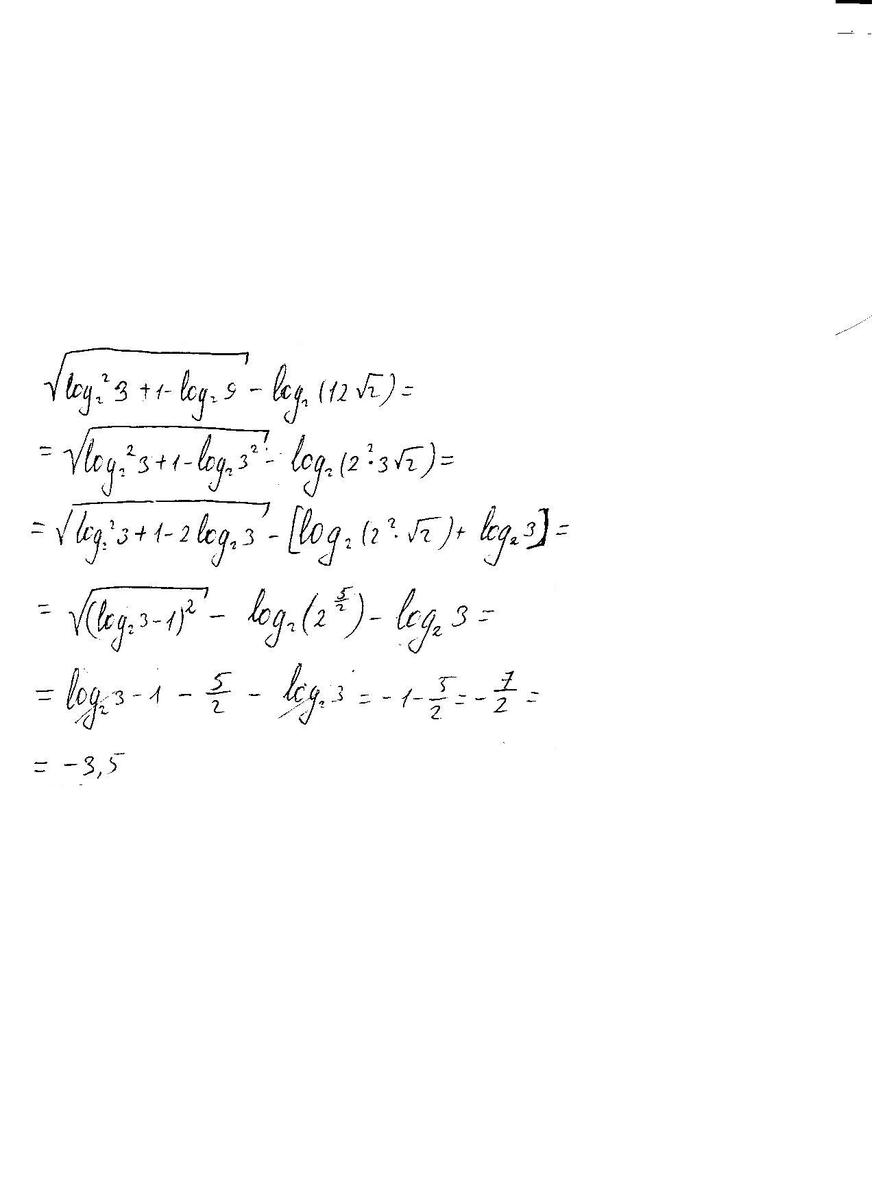 √(log₂²3 + 1 - log₂9) - log₂(12√2) =
= √(log₂²3 + 1 - log₂3²) - log₂(2²·3√2) =
= √(log₂²3 + 1 - 2log₂3) - [log₂(2²·√2) + log₂3] =
= √((log₂3 - 1)²) - log₂(2^(5/2)) - log₂3 =
= log₂3 - 1 - 5/2 - log₂3 = -1 - 5/2 = -7/2 =
= -3,5